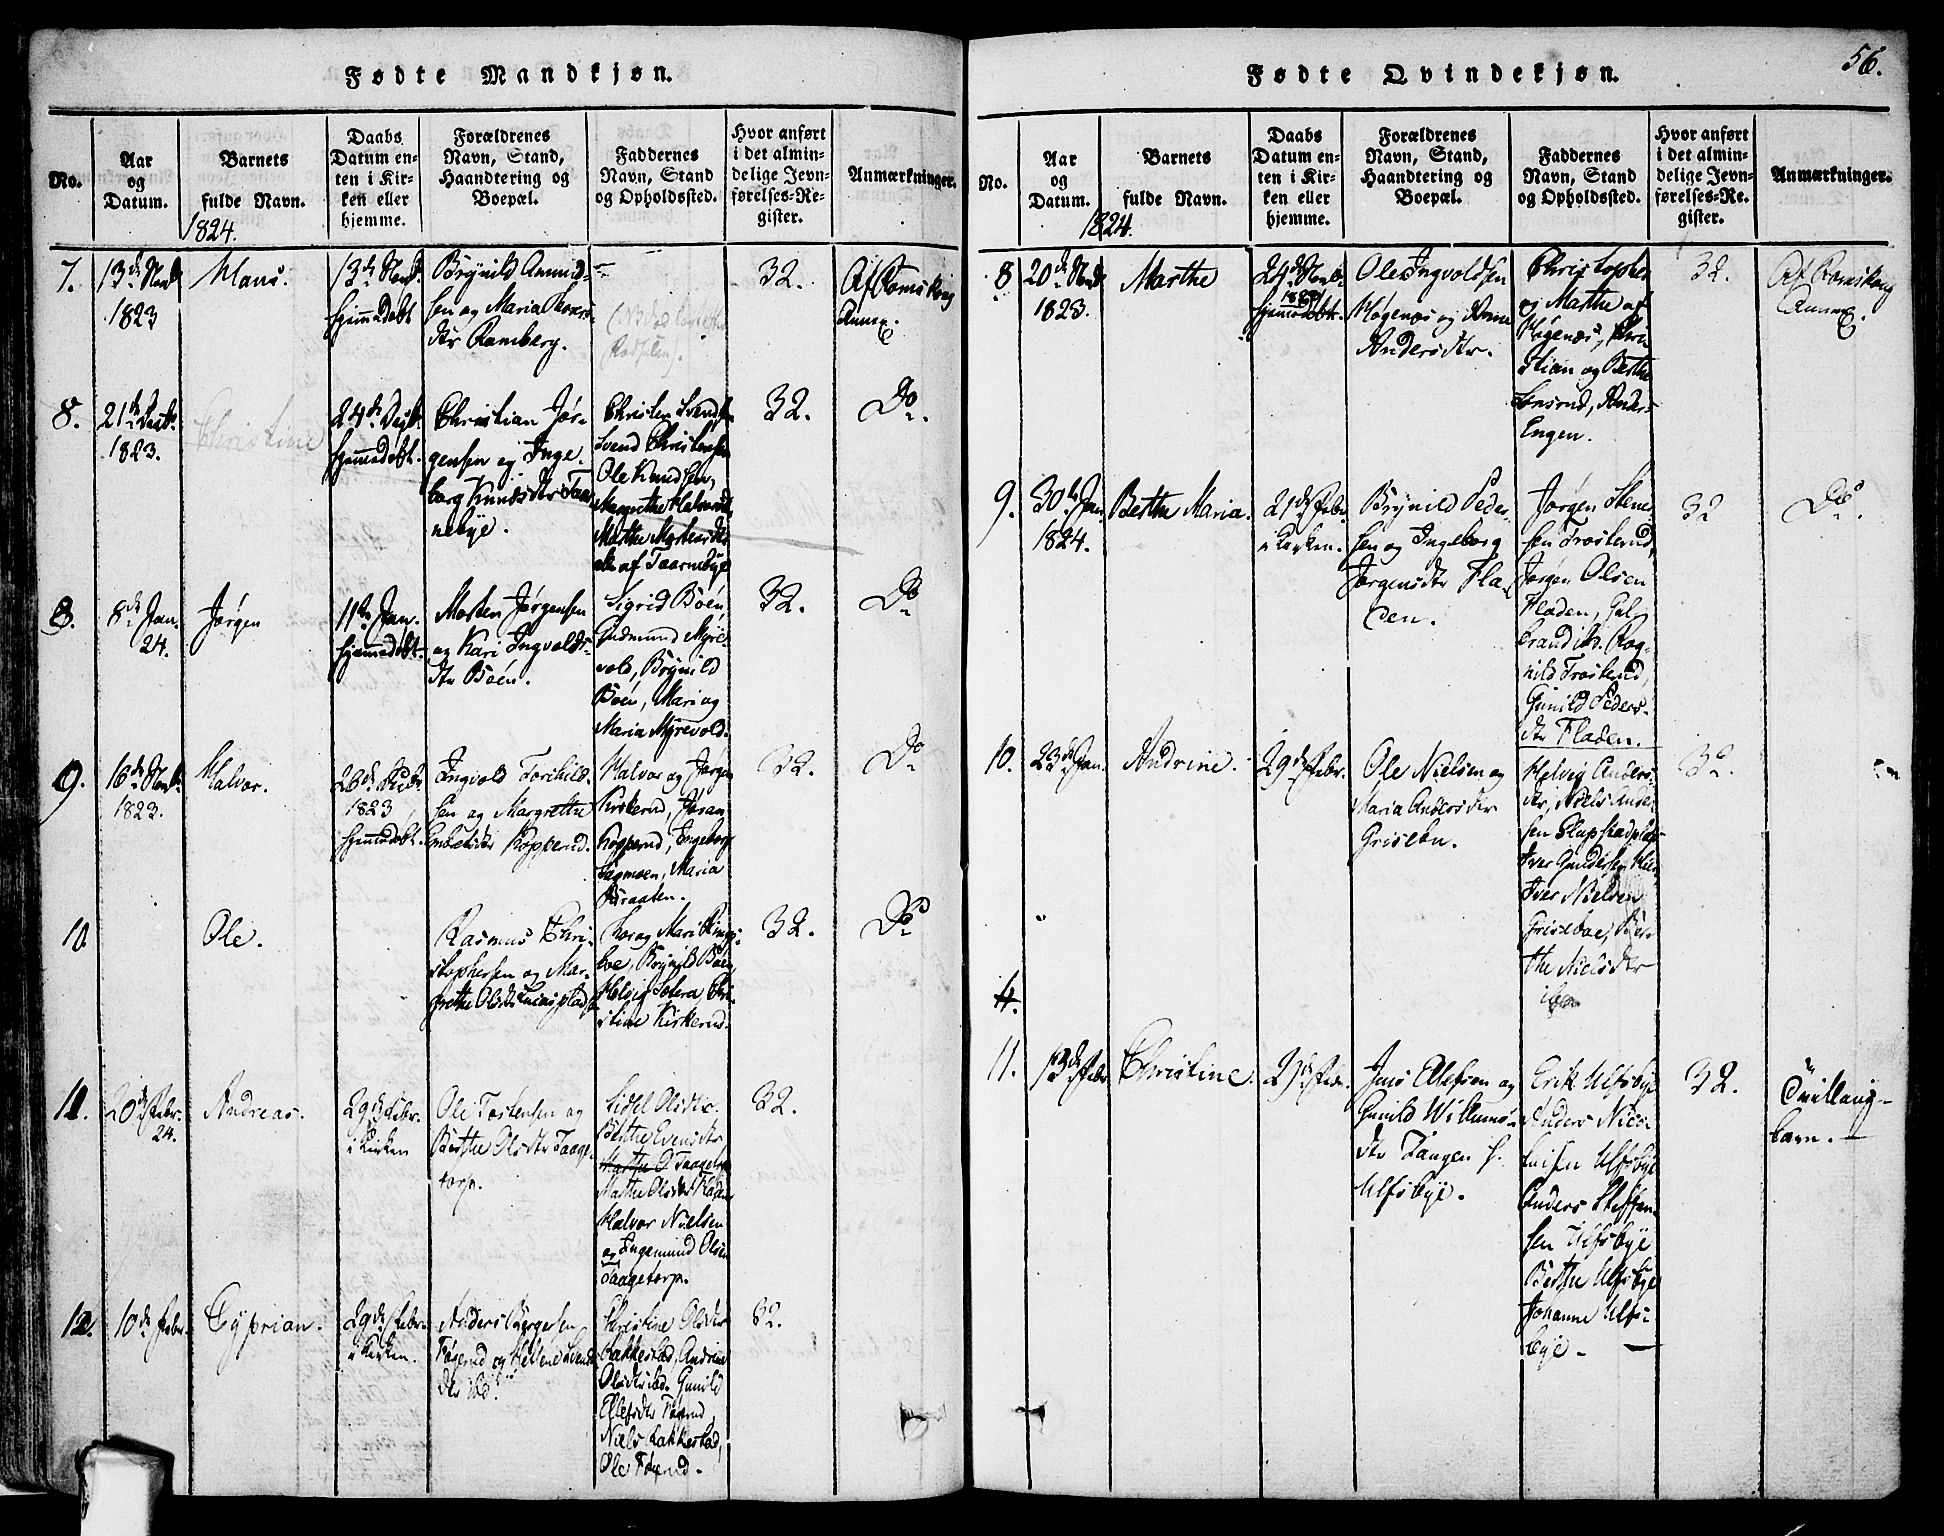 56.
Fødte Mandkjøn.
No.
Aar
og
Datum.
Barnets
fulde Navn.
Daabs
Datum en-
ten i Kir-
ken eller
hjemme.
Forældrenes
Navn, Stand,
Haandtering og
Boepæl.
Faddernes
Navn, Stand
og Opholdssted.
Hvor anført
i det almin-
delige Jevn-
førelses-Re-
gister.
Anmærkninger.
1824.
7.
13de
1823
Hans.
13de
hjemmedøbt
Brynild Amund-
sen og Maria
dtr Ramberg.
32.
Af Romskoug
Annex.
8.
21de
1823.
Christine
24de
hjemmedøbt.
Christian Jør-
gensen og Inge-
borg Knudsdtr
nebye.
Christen Svendsen
Svend Christensen
Ole Knudsen,
Margrethe
Marthe
af Taarnebye
32.
Do.
8.
8de Jan.
24.
Jørgen
11te Jan.
hjemmedøbt.
Morten Jørgensen
og Kari Ingvolds-
dtr Böen.
Sigrid Böen,
Gudmund Myre-
vold, Brynild
Böen, Mari og
Maria Myrevold.
32.
Do
9.
16de
1823.
Halvor.
26de
1823
hjemmedøbt.
Ingvold Torchild-
sen og Margrethe
Kopperud.
Halvor og Jørgen
Kirkerud, Jøran
Kopperud, Engeborg
Sagmoen, Maria
Braaten.
32.
Do
10
Ole.
Rasmus Chri-
stophersen og Mar-
grethe Olsdtr
og Mari
boe, Brynild Böen,
Helvig Chri-
stine Kirkerud.
32.
Do
11.
20de Febr.
24.
Andreas.
29de Febr.
i Kirken
Ole Torstensen og
Berthe Olsdtr Taage-
torp.
Sidsel Olsdtr.
Berthe Evensdtr
Marthe O. Taagetorp
Marthe Olsdtr
Halvor Nielsen
og Ingemund Olsen
Taagetorp.
32.
12.
10de Febr.
Cyprian.
29de Febr.
i Kirken.
Anders Børgesen
Føgerud og Hellene Svends-
dtr ibd.
Christine Olsdtr
Rakkestad, Andrine
Olsdtr ibd. Gunild
Ellefsdtr Føgerud,
Niels Rakkestad,
Ole Føgerud.
32.
Fødte Qvindekjøn.
No.
Aar
og
Datum.
Barnets
fulde Navn.
Daabs
Datum en-
ten i Kir-
ken eller
hjemme.
Forældrenes
Navn, Stand,
Haandtering og
Boepæl.
Faddernes
Navn, Stand
og Opholdssted.
Hvor anført
i det almin-
delige Jevn-
førelses-Re-
gister.
Anmærkninger.
1824.
8
20de
1823.
Marthe
24de
1823
hjemmedøbt.
Ole Ingvoldsen
Høgenæs og Anne
Andersdtr.
Christopher
og Marthe af
Høgenæs, Chri-
stian og Berthe
Anders
Engen.
32.
Af Romskoug
Annex.
9.
30te Jan.
1824.
Berthe Maria.
21de Febr.
i Kirken.
Brynild Peder-
sen og Ingeborg
Jørgensdtr Fla-
den.
Jørgen Stene-
sen Trosterud,
Jørgen Olsen
Fladen, Gul-
brand ibd. Rag-
nild Trosterud,
Gunild Peders-
dtr Fladen.
32
Do.
10.
23de Jan.
Andrine.
29de Febr.
Ole Nielsen og
Maria Andersdtr
Griseboe.
Helvig Anders-
dtr, Niels Ander-
sen
Iver Gundersen
Iver Nielsen
Griseboe, Ber-
the Nielsdtr
ibm
32
4.
11.
13de Febr.
Christine.
29de Febr.
Jens Ellefsen og
Gunild Willums-
dtr Tangen
Ulfsbye.
Erik Ulfsbye
Anders Nico-
laisen Ulfsbye
Anders Steffen-
sen Ulfsbye
Berthe Ulfsbye
Johanne Ulfs-
bye.
32.
Tvilling-
barn.